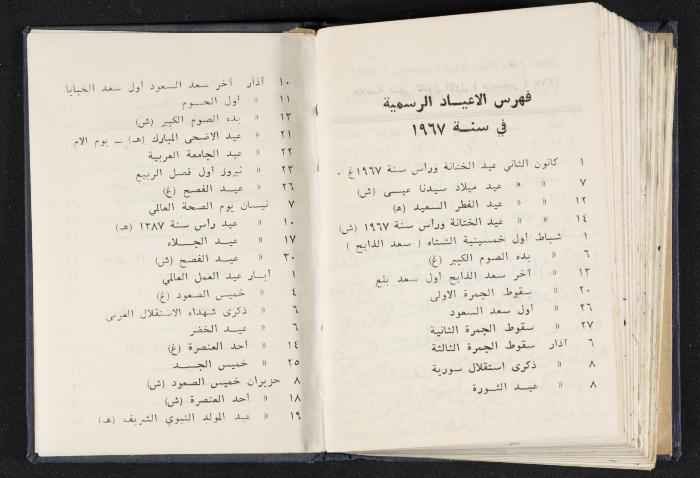 فهرس الاعيـاد الرسمية
في سنـة ١٩٦٧
١ كانون الثاني عيد الختانة ورأس سنة ١٩٦٧ غ .
٧ » » عيد ميلاد سيدنا عيسى (ش)
١٢ » » عيد الفطر السعيد (ه)
١٤ » » عيد الختانة ورأس سنة ١٩٦٧ (ش)
١ شباط أول خمسينية الشتاء ( سعد الذابح )
٦ » بدء الصوم الكبير (غ)
١٣ » آخر سعد الذابح أول سعد بلع
٢٠ » سقوط الجمرة الاولى
٢٦ » أول سعد السعود
٢٧ » سقوط الجمرة الثانية
٦ آذار سقوط الجمرة الثالثة
٨ » ذكرى استقلال سورية
٨ » عيـد الثـورة
١٠ آذار آخر سعد السعود أول سعد الخبايا
١١ » أول الحسوم
١٣ » بدء الصوم الكبير (ش)
٢١ » عيد الاضحى المبارك (هـ) ــ يوم الام
٢٢ » عيد الجامعة العربية
٢٣ » نيروز أول فصل الربيع
٢٦ » عيـد الفصح (غ)
٧ نيسان يوم الصحة العالمي
١٠ » عيد رأس سنة ١٣٨٧ (هـ)
١٧ » عيـد الجـلاء
٣٠ » عيـد الفصح (ش)
١ أيـار عيد العمل العالمي
٤ » خميس الصعود (غ)
٦ » ذكرى شهداء الاستقلال العربي
٦ » عيـد الخضر
١٤ » أحد العنصرة (غ)
٢٥ » خميس الجسد
٨ حزيران خميس الصعود (ش)
١٨ » أحد العنصرة (ش)
١٩ » عيد المولد النبوي الشريف (هـ)